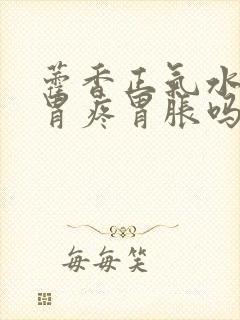 藿香正气水
胃疼胃胀吗
每每笑